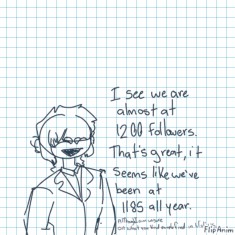 I see we are
almost at
1200 followers.
That's great, it
seems like we've
been at
1185 all year.
Although im unsure
FlipAnim